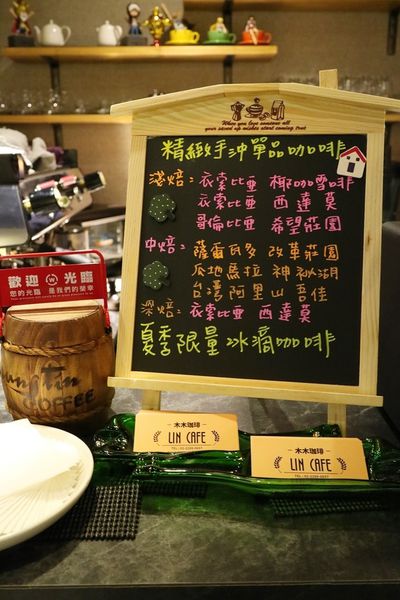 When you love someone all
your saved up wishes start coming true
精緻手沖單品咖啡
淺焙：衣索比亞 椰咖雪啡
衣索比亞 西達莫
哥倫比亞 希望莊園
中焙：薩爾瓦多 改革莊園
瓜地馬拉 神祕湖
台灣阿里山 吾佳
深焙：衣索比亞 西達莫
夏季限量冰滴咖啡
歡迎 光臨
您的光臨 是我們的榮幸
COFFEE
木木珈琲
LIN CAFE
木木珈琲
LIN CAFE